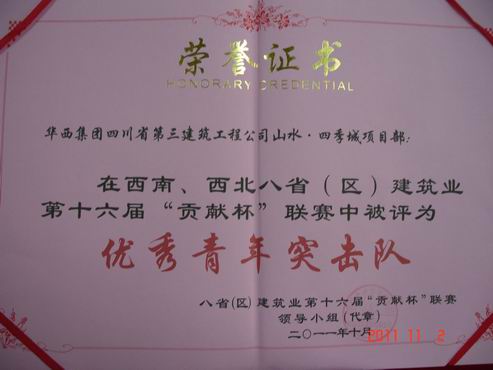 荣誉证书
HONORARY CREDENTIAL
华西集团四川省第三建筑工程公司山水·四季城项目部：
在西南、西北八省（区）建筑业
第十六届“贡献杯”联赛中被评为
优秀青年突击队
八省(区)建筑业第十六届“贡献杯”联赛
领导小组(代章)
二〇一一年十月
2011 11 2